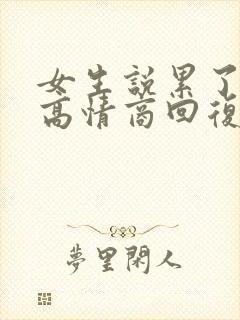 女生說累了
高情商回復
夢里閑人